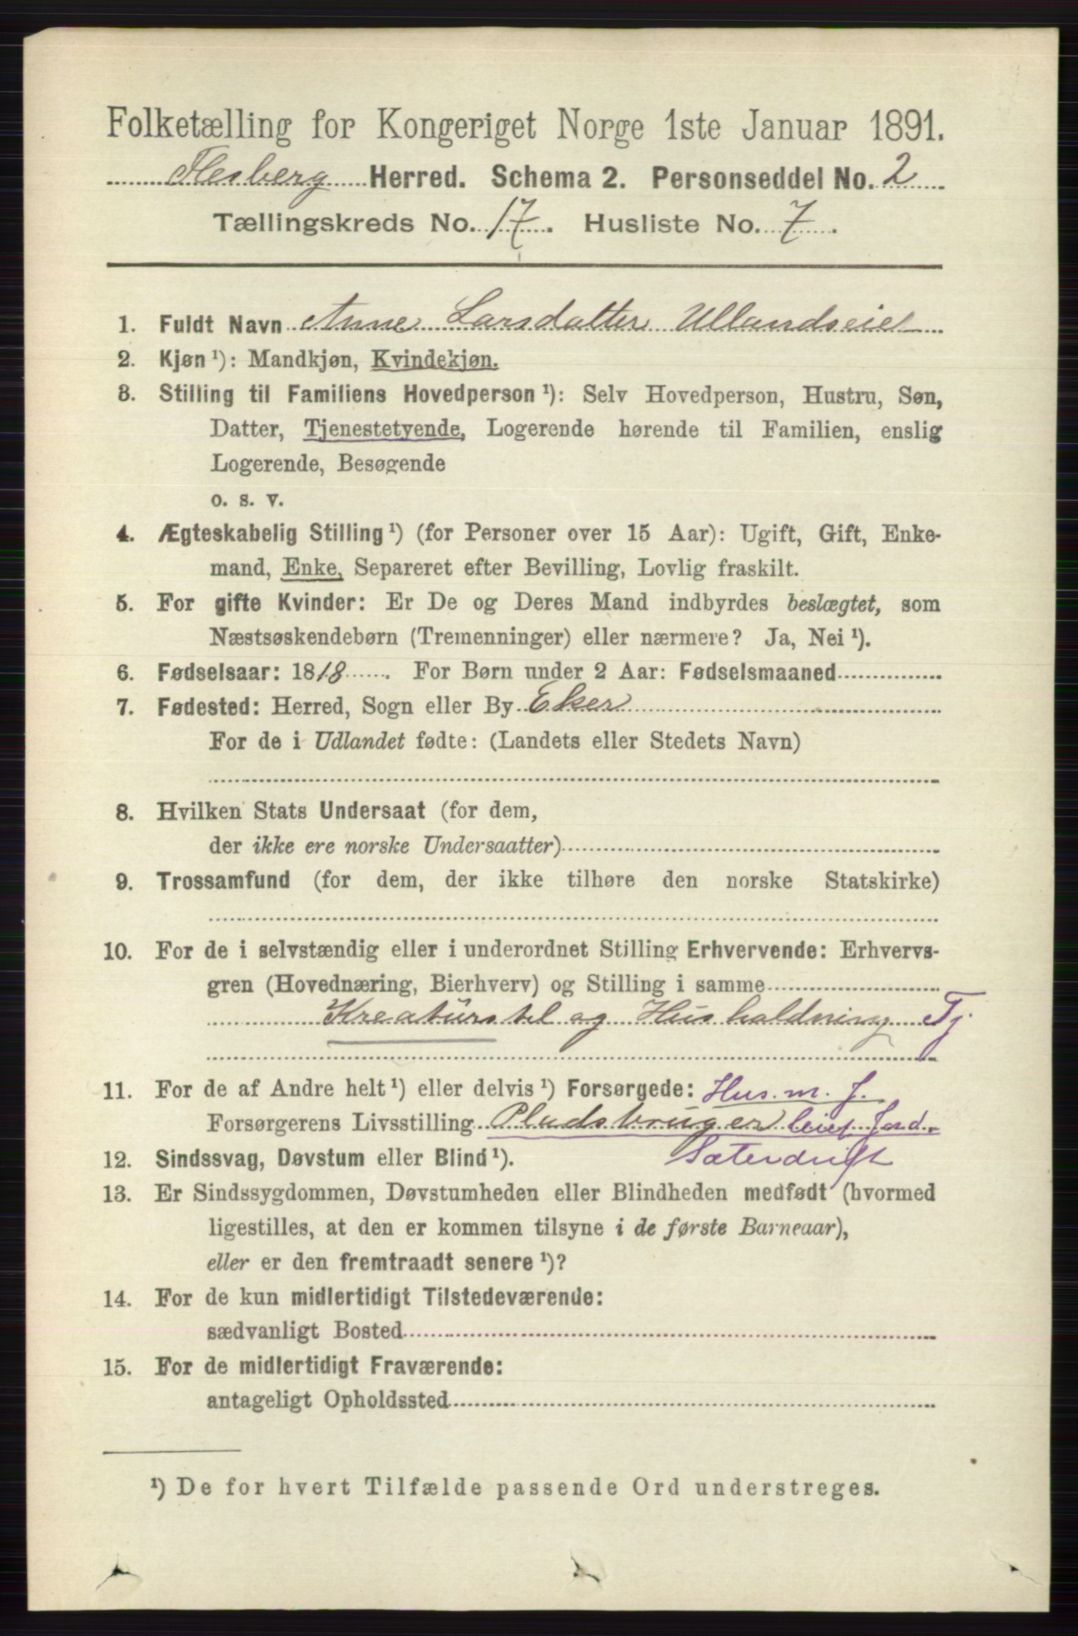 Folketælling for Kongeriget Norge 1ste Januar 1891.
Flesberg Herred. Schema 2. Personseddel No. 2
Tællingskreds No. 17. Husliste No. 7.
1. Fuldt Navn Anne Larsdatter Ullandseiet
2. Kjøn ¹): Mandkjøn, Kvindekjøn.
3. Stilling til Familiens Hovedperson ¹): Selv Hovedperson, Hustru, Søn,
Datter, Tjenestetyende, Logerende hørende til Familien, enslig
Logerende, Besøgende
o. s. v.
4. Ægteskabelig Stilling ¹) (for Personer over 15 Aar): Ugift, Gift, Enke-
mand, Enke, Separeret efter Bevilling, Lovlig fraskilt.
5. For gifte Kvinder: Er De og Deres Mand indbyrdes beslægtet, som
Næstsøskendebørn (Tremenninger) eller nærmere? Ja, Nei ¹).
6. Fødselsaar: 1818. For Børn under 2 Aar: Fødselsmaaned
7. Fødested: Herred, Sogn eller By Eker
For de i Udlandet fødte: (Landets eller Stedets Navn)
8. Hvilken Stats Undersaat (for dem,
der ikke ere norske Undersaatter)
9. Trossamfund (for dem, der ikke tilhøre den norske Statskirke)
10. For de i selvstændig eller i underordnet Stilling Erhvervende: Erhvervs-
gren (Hovednæring, Bierhverv) og Stilling i samme
Kreaturstel og Husholdning Tj.
11. For de af Andre helt ¹) eller delvis ¹) Forsørgede: Hus. m. J.
Forsørgerens Livsstilling Pladsbruger leiet Jord.
12. Sindssvag, Døvstum eller Blind ¹). Sæterdrift
13. Er Sindssygdommen, Døvstumheden eller Blindheden medfødt (hvormed
ligestilles, at den er kommen tilsyne i de første Barneaar),
eller er den fremtraadt senere ¹)?
14. For de kun midlertidigt Tilstedeværende:
sædvanligt Bosted
15. For de midlertidigt Fraværende:
antageligt Opholdssted
¹) De for hvert Tilfælde passende Ord understreges.